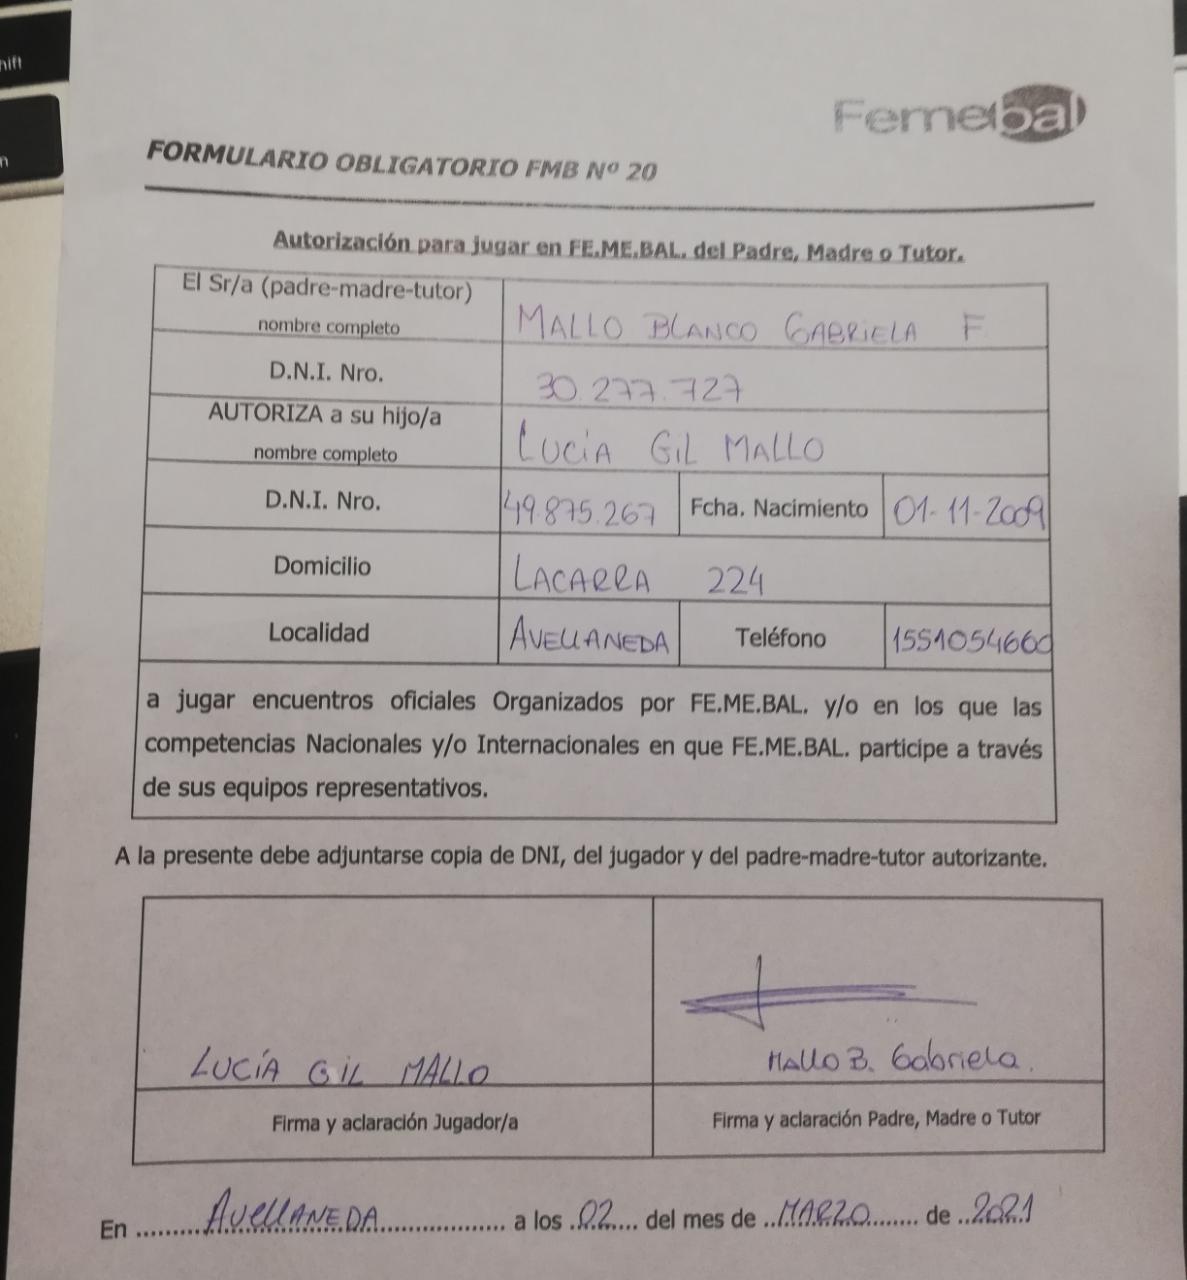 hift
Femebal
FORMULARIO OBLIGATORIO FMB Nº 20
Autorización para jugar en FE.ME.BAL. del Padre, Madre o Tutor.
El Sr/a (padre-madre-tutor)
nombre completo
MALLO BLANCO GABRIELA F
D.N.I. Nro.
30.277.727
AUTORIZA a su hijo/a
nombre completo
LUCÍA GIL MALLO
D.N.I. Nro.
49.875.267
Fcha. Nacimiento
01-11-2009
Domicilio
LACARRA 224
Localidad
AVELLANEDA
Teléfono
1551054660
a jugar encuentros oficiales Organizados por FE.ME.BAL. y/o en los que las
competencias Nacionales y/o Internacionales en que FE.ME.BAL. participe a través
de sus equipos representativos.
A la presente debe adjuntarse copia de DNI, del jugador y del padre-madre-tutor autorizante.
LUCÍA GIL MALLO
MALLO B. Gabriela.
Firma y aclaración Jugador/a
Firma y aclaración Padre, Madre o Tutor
En AVELLANEDA a los 02 del mes de MARZO de 2021